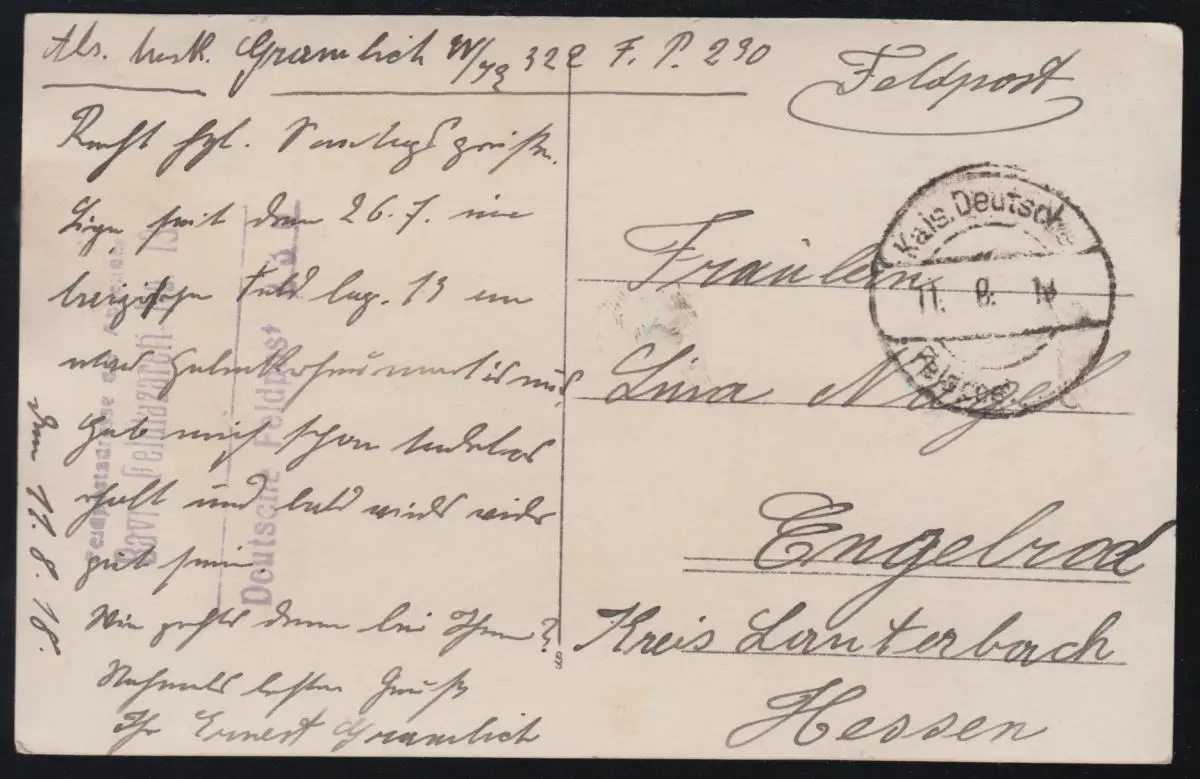 Abs. Musk. Gramlich W/79 322 F. P. 230
Feldpost
Recht hzl. Sonntagsgrüße.
Liege seit dem 26.7. im
bayrischen Feld laz. 19 an
Hab mich schon tadellos
erholt und bald wirds wieder
gut sein.
Wie gehts denn bei Ihnen?
Nochmals besten Gruß
Ihr Ernest Gramlich
den 11. 8. 18.
Feldpostadresse des
Bayr. Feldlazarett Nr. 19
Deutsche Feldpost
Kais. Deutsche
11. 8. 18
Feldpost
Fräulein
Lina Nagel
Engelrod
Kreis Lauterbach
Hessen